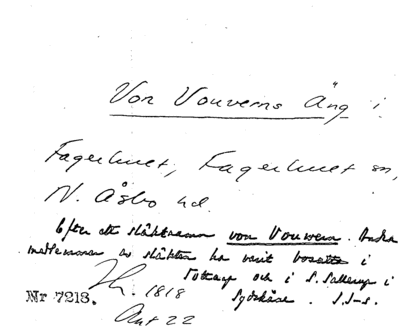 Von Vouverns Äng i
Fagerhult, Fagerhult sn,
N. Åsbo hd.
Efter ett släktnamn von Vouvern. Andra
medlemmar av släkten ha varit bosatta i
och i S. Sallerup i
Sydskåne. I.I-s.
Nr 7213. 1818
Ant 22